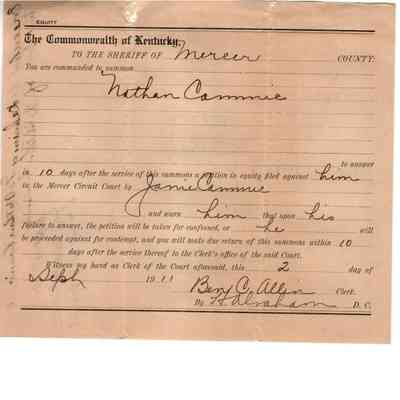 EQUITY
The Commonwealth of Kentucky,
TO THE SHERIFF OF Mercer COUNTY:
You are commanded to summon
Nathan Cammuc
to answer
in 10 days after the service of this summons a petition in equity filed against him
in the Mercer Circuit Court by Janie Cammuc
and warn him that upon his
failure to answer, the petition will be taken for confessed, or he will
be proceeded against for contempt, and you will make due return of this summons within 10
days after the service thereof to the Clerk's office of the said Court.
Witness my hand as Clerk of the Court aforesaid, this 2 day of
Sept 1911 Ben C. Allin Clerk.
By Abraham D. C.